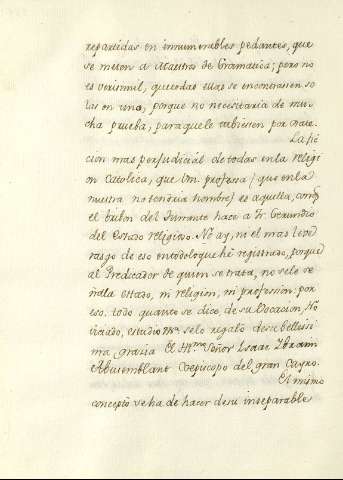 repartidas en innumerables pedantes, que
se meten a Maestros de Gramatica; pero no
es verisimil, que todas ellas se encontrasen so
las en uno, porque no necesitaria de mu-
cha prueba, para que le tubiesen por orate.
La fic
cion mas perjudicial de todas en la religi
on Catolica, que Vm. profesa (que en la
nuestra no tendria nombre) es aquella, con q.
el bufon del Seminante hace a Fr. Gerundio
del Estado religioso. No ay, ni el mas leve
rasgo de eso en todo lo que hé registrado, porque
al Predicador de quien se trata, no se le se
ñala estado, ni religion, ni profession: por
eso. todo quanto se dice, de su Vocacion, No
viciado, estudio &a. se lo regaló de su bellissi
ma gracia El Ill.mo Señor Isaac Ibrain
Abusemblant Coepiscopo del gran Cayro.
El mismo
concepto se ha de hacer de su inseparable